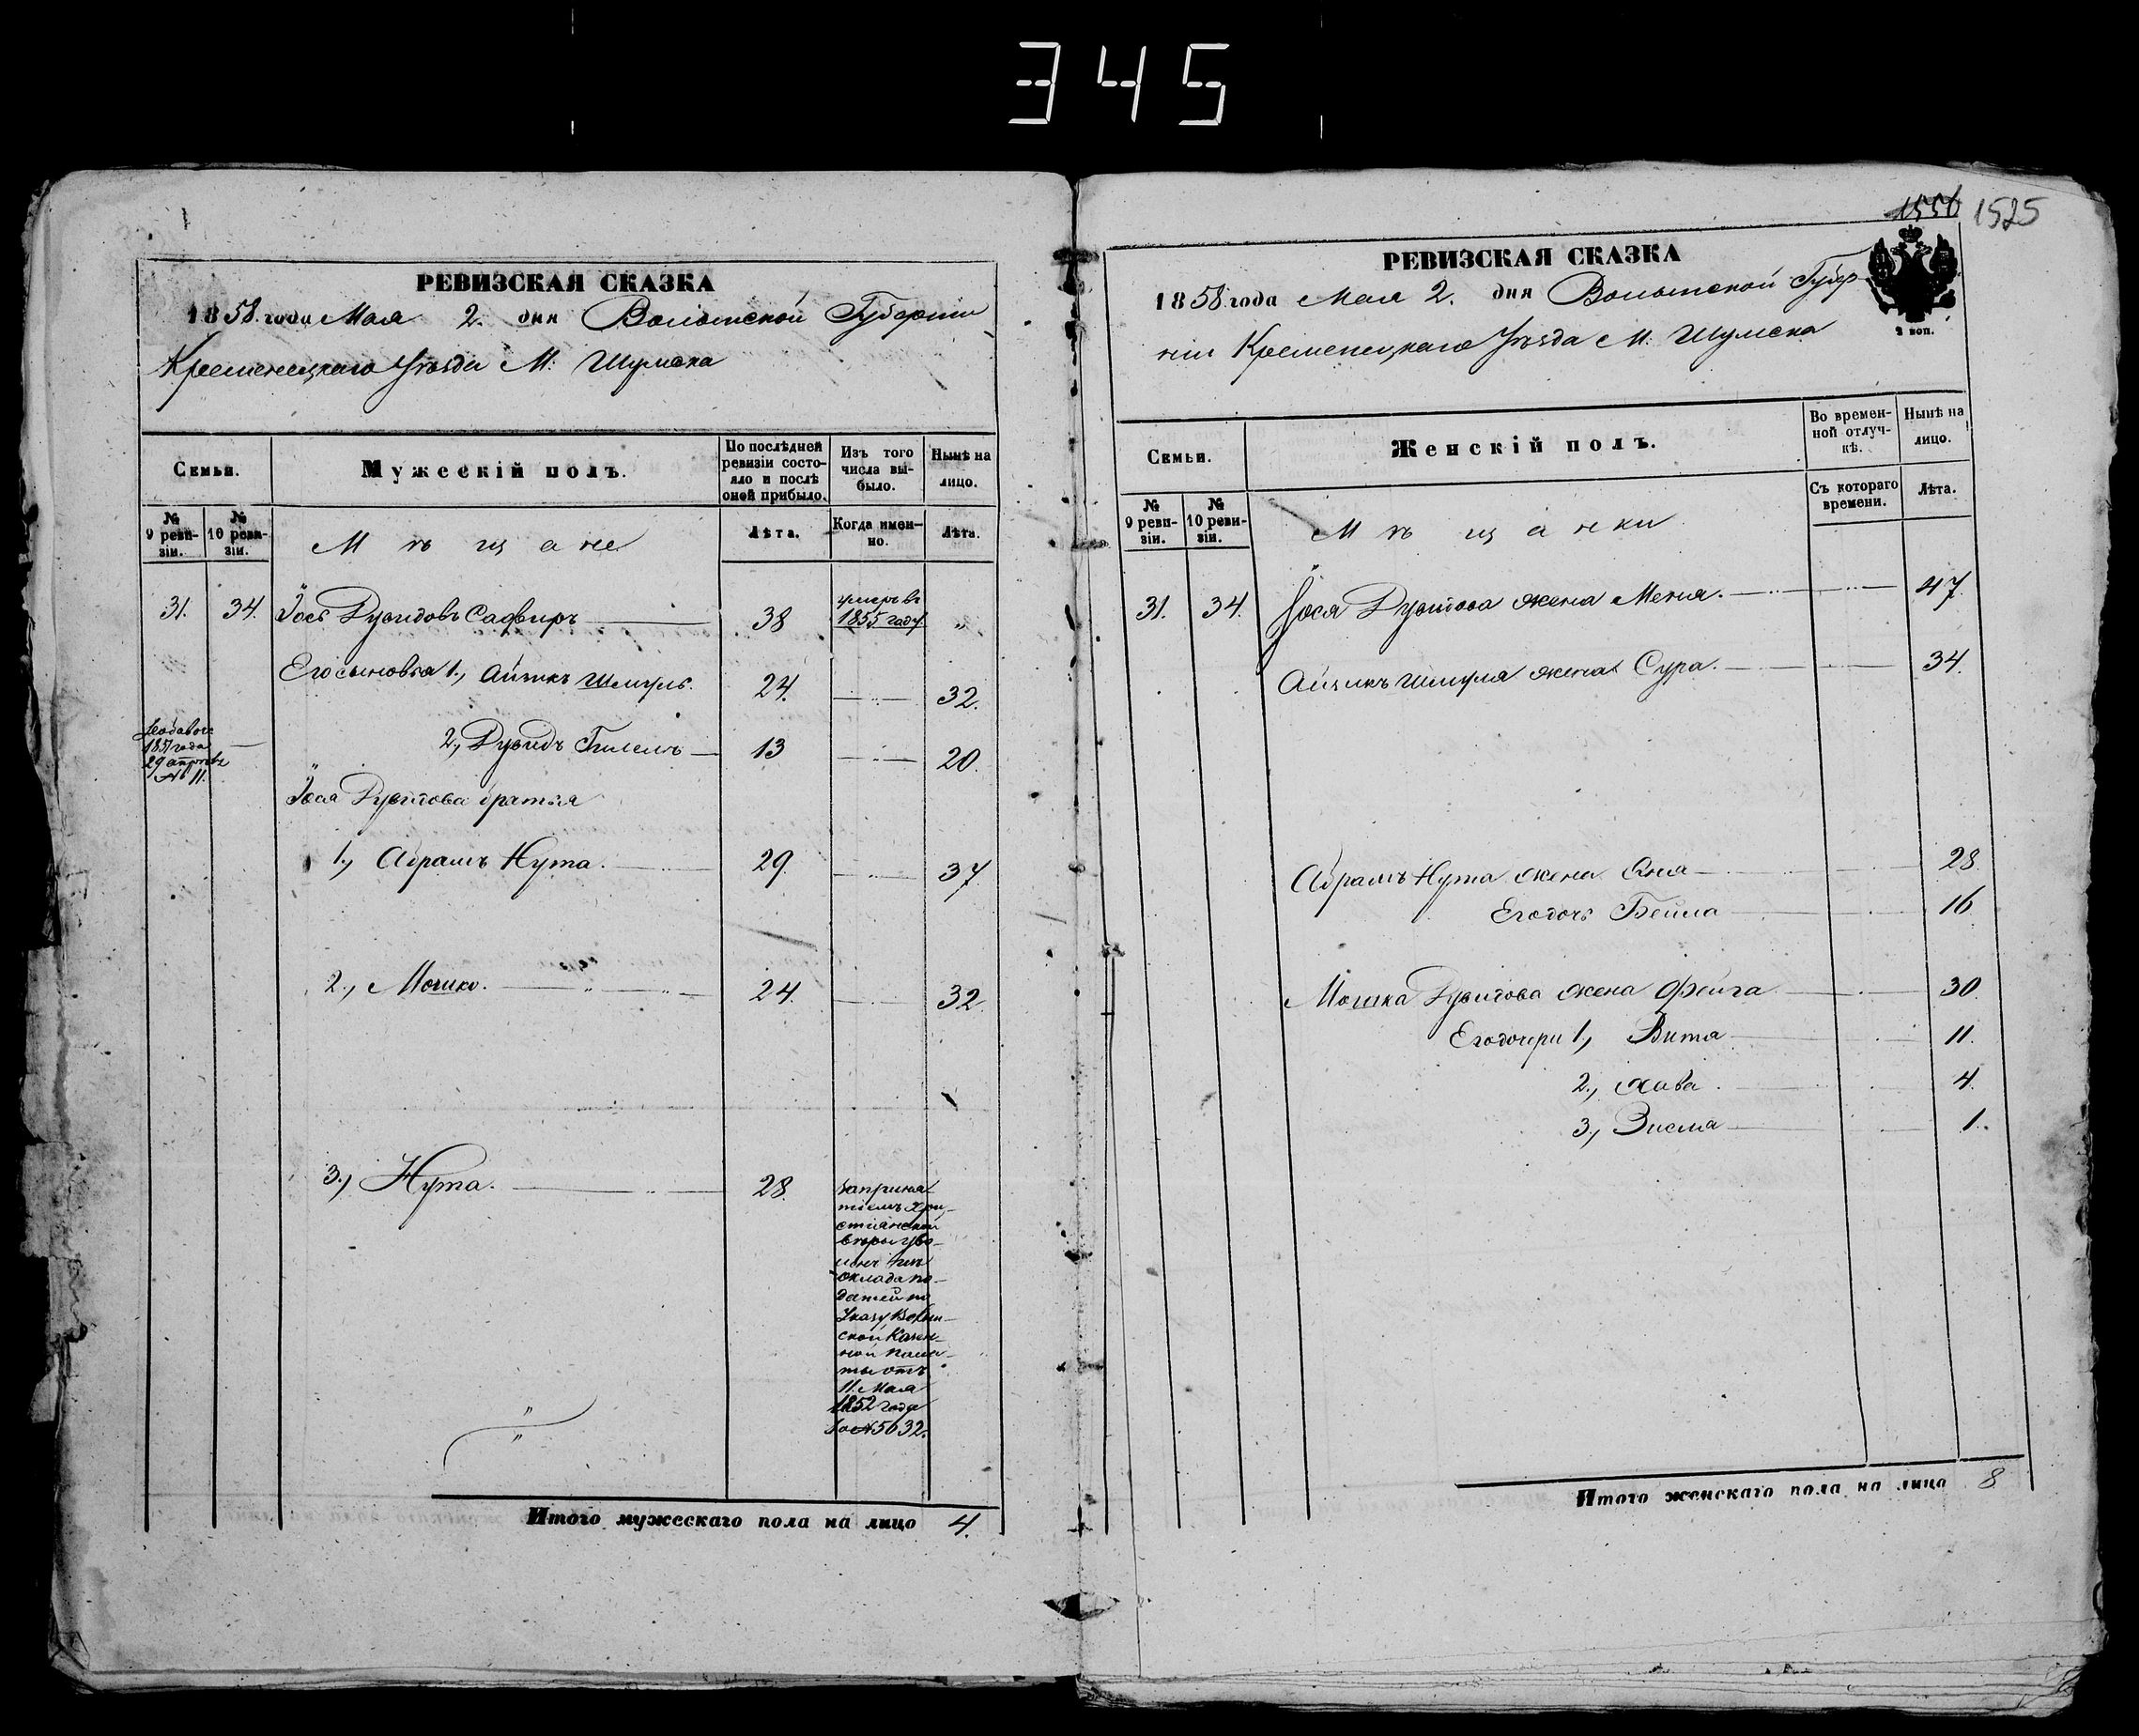 345
РЕВИЗСКАЯ СКАЗКА
1858 года Мая 2. дня Волынской Губернiи
Кременецкаго Уѣзда М: Шумска
Семьи.
Мужескiй полъ.
По послѣдней ревизiи состояло и послѣ оной прибыло.
Изъ того числа выбыло.
Нынѣ на лицо.
№ 9 ревизiи.
№ 10 ревизiи.
Мѣщане
Лѣта.
Когда именно.
Лѣта.
31. 34. Iось Дувидовъ Сафиръ 38 умеръ въ 1855 году "
Его сыновья 1., Айзикъ Шмуль. 24. 32.
1851 года
29
№ 11.
2., Дувидъ 13 20.
Iося Дувидова братья
1., Абрамъ Нута. 29. 37
2., Мошко. 24. 32.
3., Нута. 28.
за приня-
тiемъ Хри-
стiанской
вѣры
изъ
оклада по-
датей по
Указу Волын-
ской Казен-
ной Пала-
ты отъ
11. Мая
1852 года
за № 5632.
Итого мужескаго пола на лицо 4.
1556 1525
РЕВИЗСКАЯ СКАЗКА
1858 года Мая 2. дня Волынской Губер-
нiи Кременецкаго Уѣзда М: Шумска
3 коп.
Семьи.
Женскiй полъ.
Во временной отлучкѣ.
Нынѣ на лицо.
№ 9 ревизiи.
№ 10 ревизiи.
Мѣщанки
Съ котораго времени.
Лѣта.
31. 34. Iося Дувидова жена Меня. 47.
Айзикъ Шмуля жена Сура. 34.
Абрамъ Нута жена 28.
Его дочь Бейла 16
Мошка Дувидова жена Фейга 30.
Его дочери 1., Вита 11.
2., Хава. 4.
3., Зисля 1.
Итого женскаго пола на лицо 8